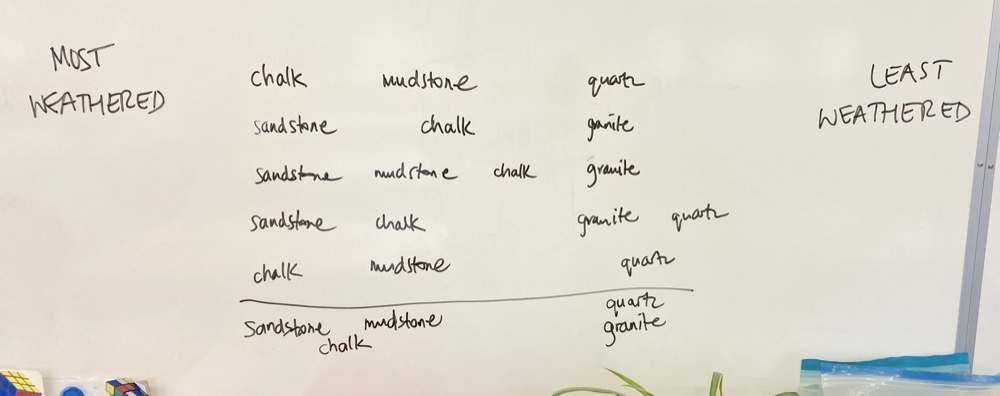 MOST
WEATHERED
LEAST
WEATHERED
chalk mudstone quartz
sandstone chalk granite
sandstone mudstone chalk granite
sandstone chalk granite quartz
chalk mudstone quartz
quartz
sandstone mudstone granite
chalk